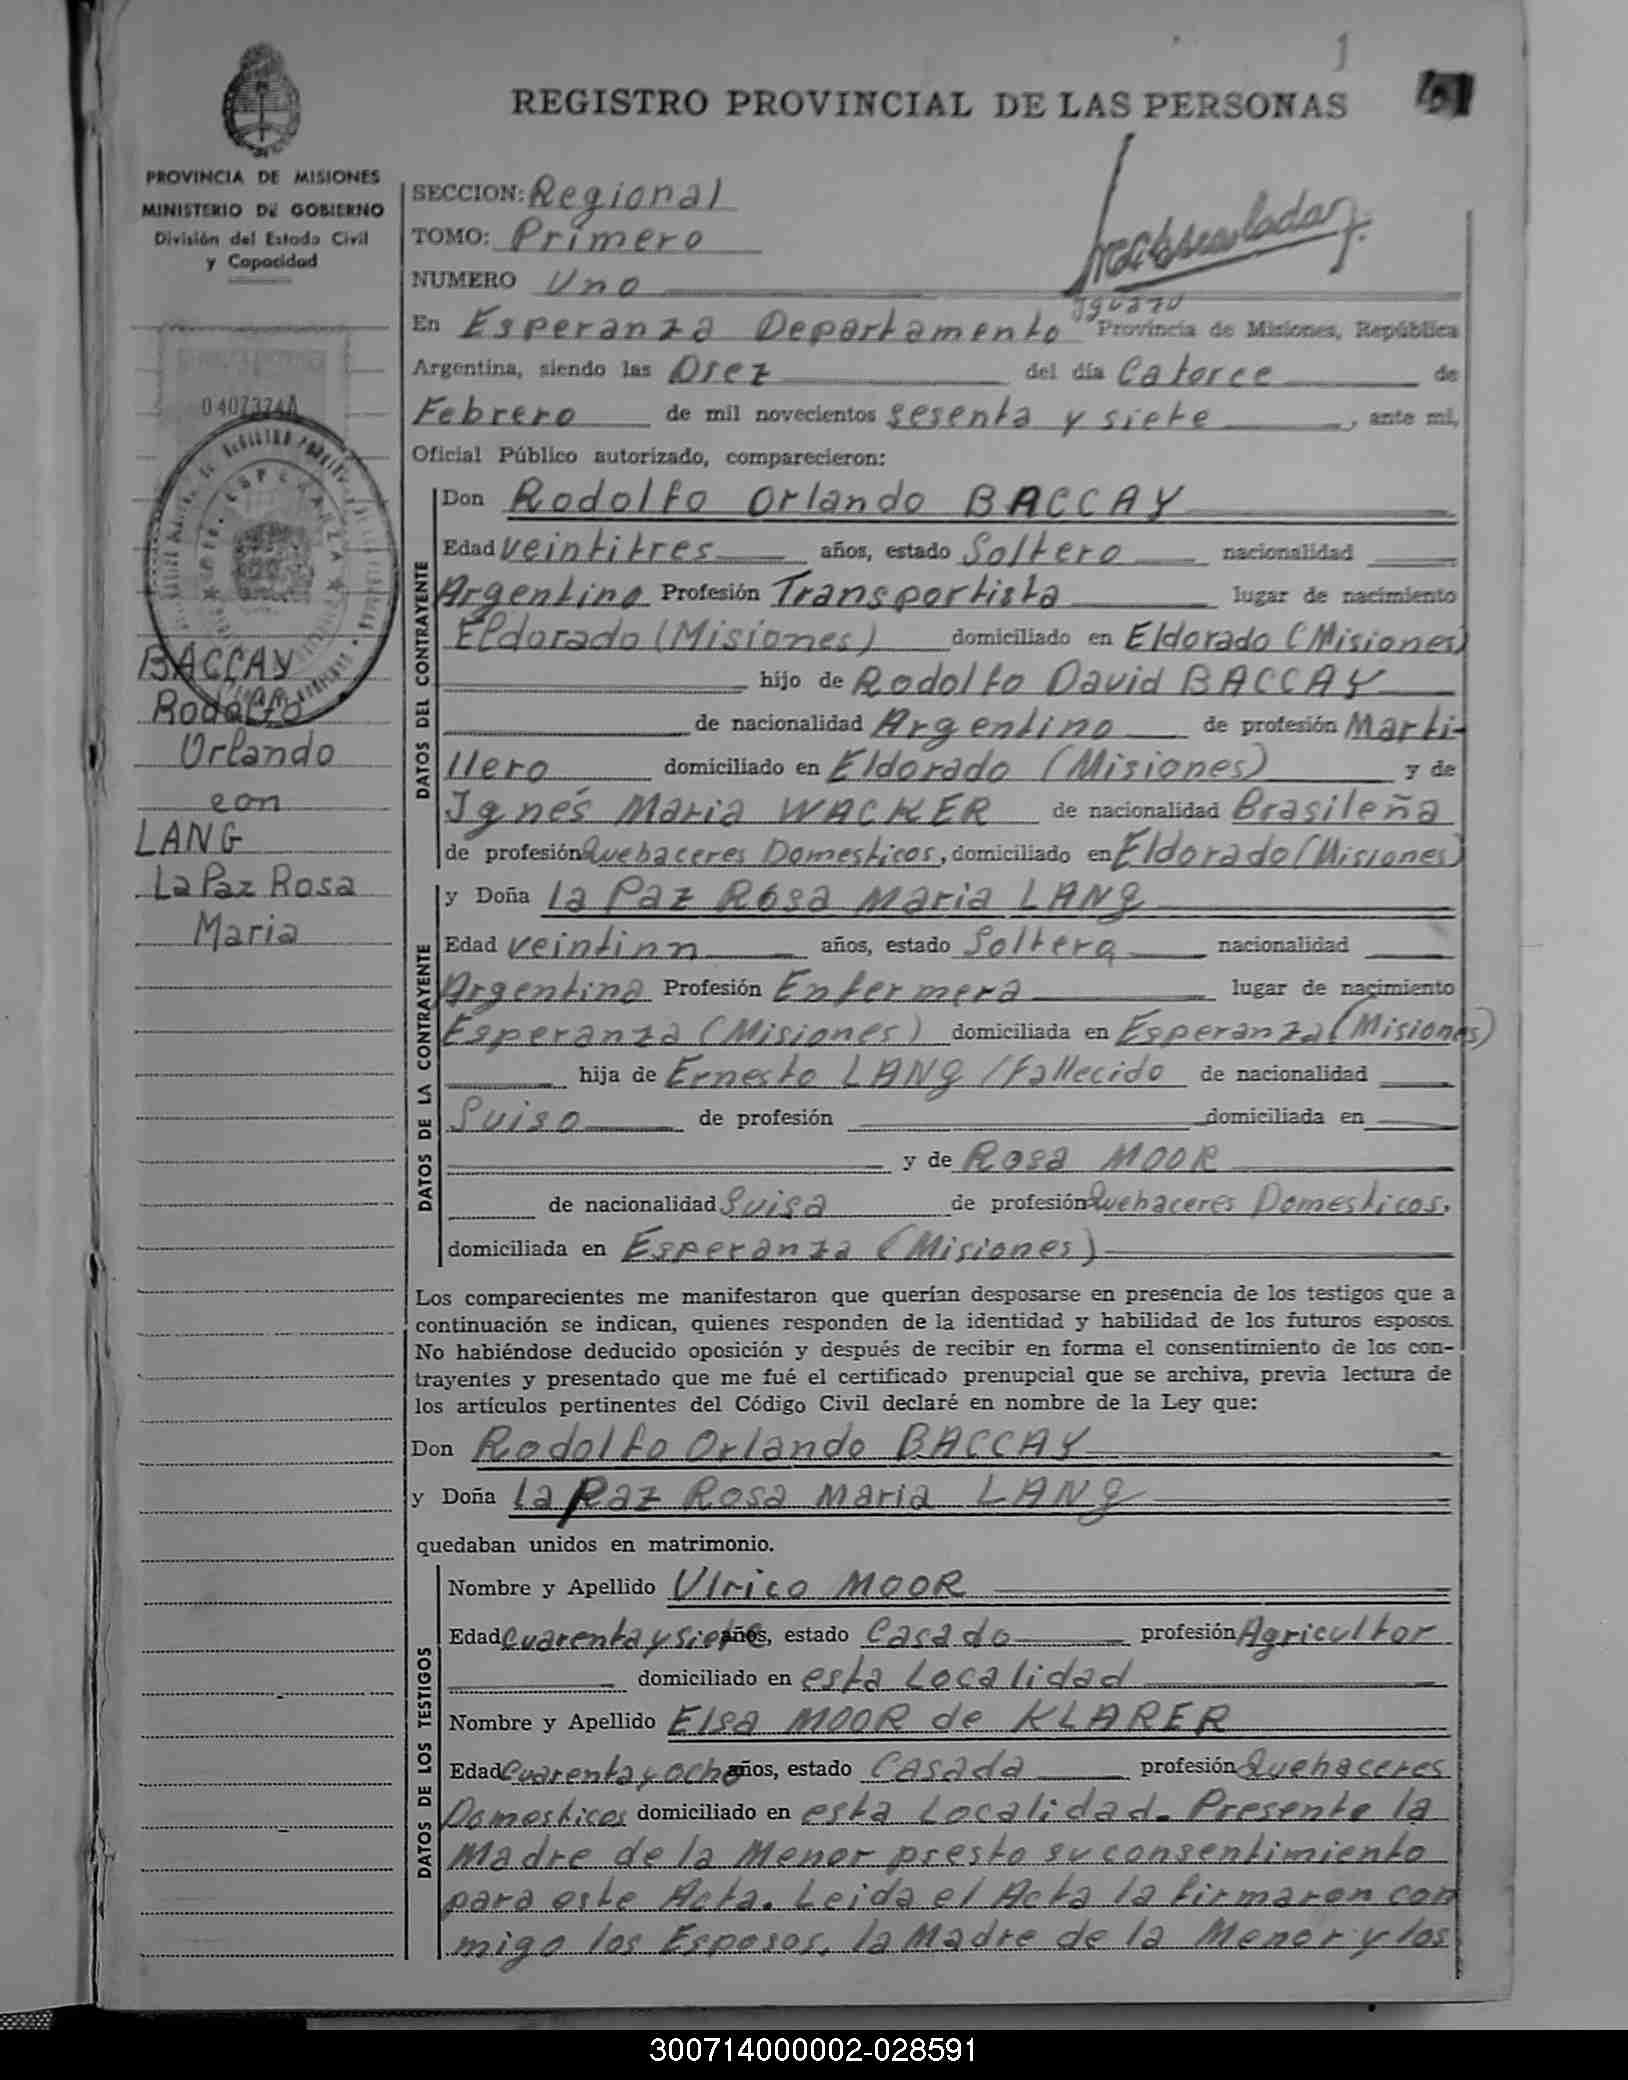 1
REGISTRO PROVINCIAL DE LAS PERSONAS
PROVINCIA DE MISIONES
MINISTERIO DE GOBIERNO
División del Estado Civil
y Capacidad
0407374A
ESPERANZA
BACCAY
Rodolfo
Orlando
con
LANG
La Paz Rosa
Maria
SECCION: Regional
TOMO: Primero
NUMERO Uno
Iguazú
En Esperanza Departamento Provincia de Misiones, República
Argentina, siendo las Diez del día Catorce de
Febrero de mil novecientos sesenta y siete, ante mi,
Oficial Público autorizado, comparecieron:
DATOS DEL CONTRAYENTE
Don Rodolfo Orlando BACCAY
Edad veintitres años, estado Soltero nacionalidad
Argentino Profesión Transportista lugar de nacimiento
Eldorado (Misiones) domiciliado en Eldorado (Misiones)
hijo de Rodolfo David BACCAY
de nacionalidad Argentino de profesión Marti-
llero domiciliado en Eldorado (Misiones) y de
Ignés Maria WACKER de nacionalidad Brasileña
de profesión Quehaceres Domesticos, domiciliado en Eldorado (Misiones)
DATOS DE LA CONTRAYENTE
y Doña la Paz Rosa Maria LANG
Edad veintiun años, estado Soltera nacionalidad
Argentina Profesión Enfermera lugar de nacimiento
Esperanza (Misiones) domiciliada en Esperanza (Misiones)
hija de Ernesto LANG /fallecido de nacionalidad
Suiso de profesión domiciliada en
y de Rosa MOOR
de nacionalidad Suisa de profesión Quehaceres Domesticos.
domiciliada en Esperanza (Misiones)
Los comparecientes me manifestaron que querían desposarse en presencia de los testigos que a
continuación se indican, quienes responden de la identidad y habilidad de los futuros esposos.
No habiéndose deducido oposición y después de recibir en forma el consentimiento de los con-
trayentes y presentado que me fué el certificado prenupcial que se archiva, previa lectura de
los artículos pertinentes del Código Civil declaré en nombre de la Ley que:
Don Rodolfo Orlando BACCAY
y Doña la Paz Rosa Maria LANG
quedaban unidos en matrimonio.
DATOS DE LOS TESTIGOS
Nombre y Apellido Ulrico MOOR
Edad Cuarenta y siete años, estado Casado profesión Agricultor
domiciliado en esta Localidad
Nombre y Apellido Elsa MOOR de KLARER
Edad Cuarenta y ocho años, estado Casada profesión Quehaceres
Domesticos domiciliado en esta Localidad. Presente la
Madre de la Menor presto su consentimiento
para este Acta. Leida el Acta la firmaron con
migo los Esposos, la Madre de la Menor y los
300714000002-028591